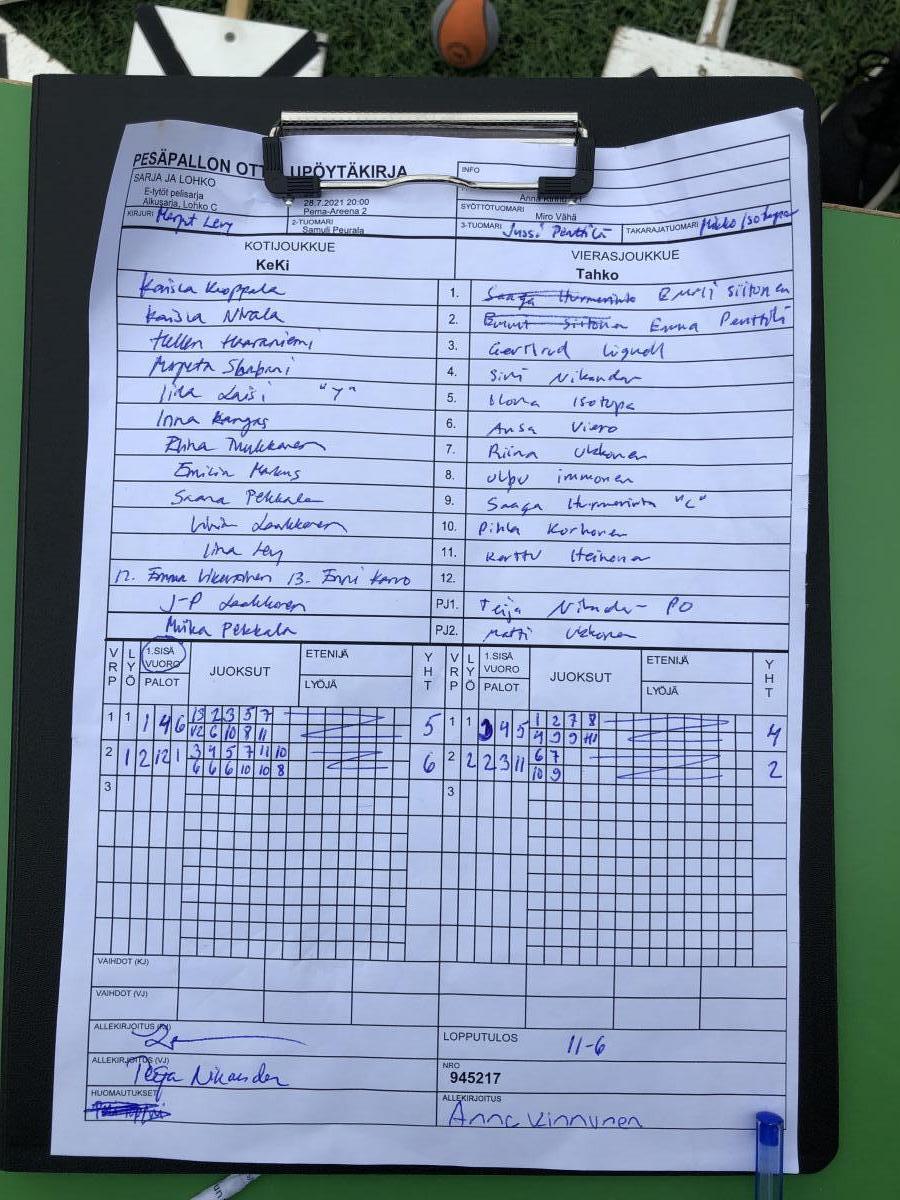 PESÄPALLON OTT UPÖYTÄKIRJA
INFO
SARJA JA LOHKO
E-tytöt pelisarja
Alkusarja, Lohko C
28.7.2021 20:00
Pema-Areena 2
SYÖTTÖTUOMARI
Miro Vähä
KIRJURI
2-TUOMARI
Samuli Peurala
3-TUOMARI Jussi Penttilä
TAKARAJATUOMARI
KOTIJOUKKUE
KeKi
VIERASJOUKKUE
Tahko
Kaisla Kuoppala 1. Saaga Hurmerinta Emili Siitonen
Kaisla Nivala 2. Emili Siitonen Enna Penttilä
Hellen Haaraniemi 3. Lignell
4. Sini Nikander
Iina "Y" 5. Ilona Isotupa
Inna Kangas 6. Ansa Viero
Tuukkanen 7. Riina Ukkonen
Emilia Markus 8. Ulpu immonen
Saana Pekkala 9. Saaga Hurmerinta "C"
Laakkonen 10. Pihla Korhonen
Iina 11. Kerttu Heinonen
12. Emma 13. Enni 12.
J-P Laakkonen PJ1. Teija Nikander PO
Miika Pekkala PJ2. Matti Ukkonen
VRP LYÖ 1.SISÄ VUORO PALOT JUOKSUT ETENIJÄ LYÖJÄ YHT VRP LYÖ 1.SISÄ VUORO PALOT JUOKSUT ETENIJÄ LYÖJÄ YHT
1 1 1 4 6 13 2 3 5 7 5 1 1 3 4 5 1 2 7 8 4
12 6 10 8 11 4 9 9 11
2 1 2 12 1 3 4 5 7 11 10 6 2 2 2 3 11 6 7 2
6 6 6 10 10 8 10 9
3 3
VAIHDOT (KJ)
VAIHDOT (VJ)
ALLEKIRJOITUS (KJ)
LOPPUTULOS 11-6
ALLEKIRJOITUS (VJ)
Teija Nikander
NRO
945217
HUOMAUTUKSET
ALLEKIRJOITUS
Anna Kinnunen